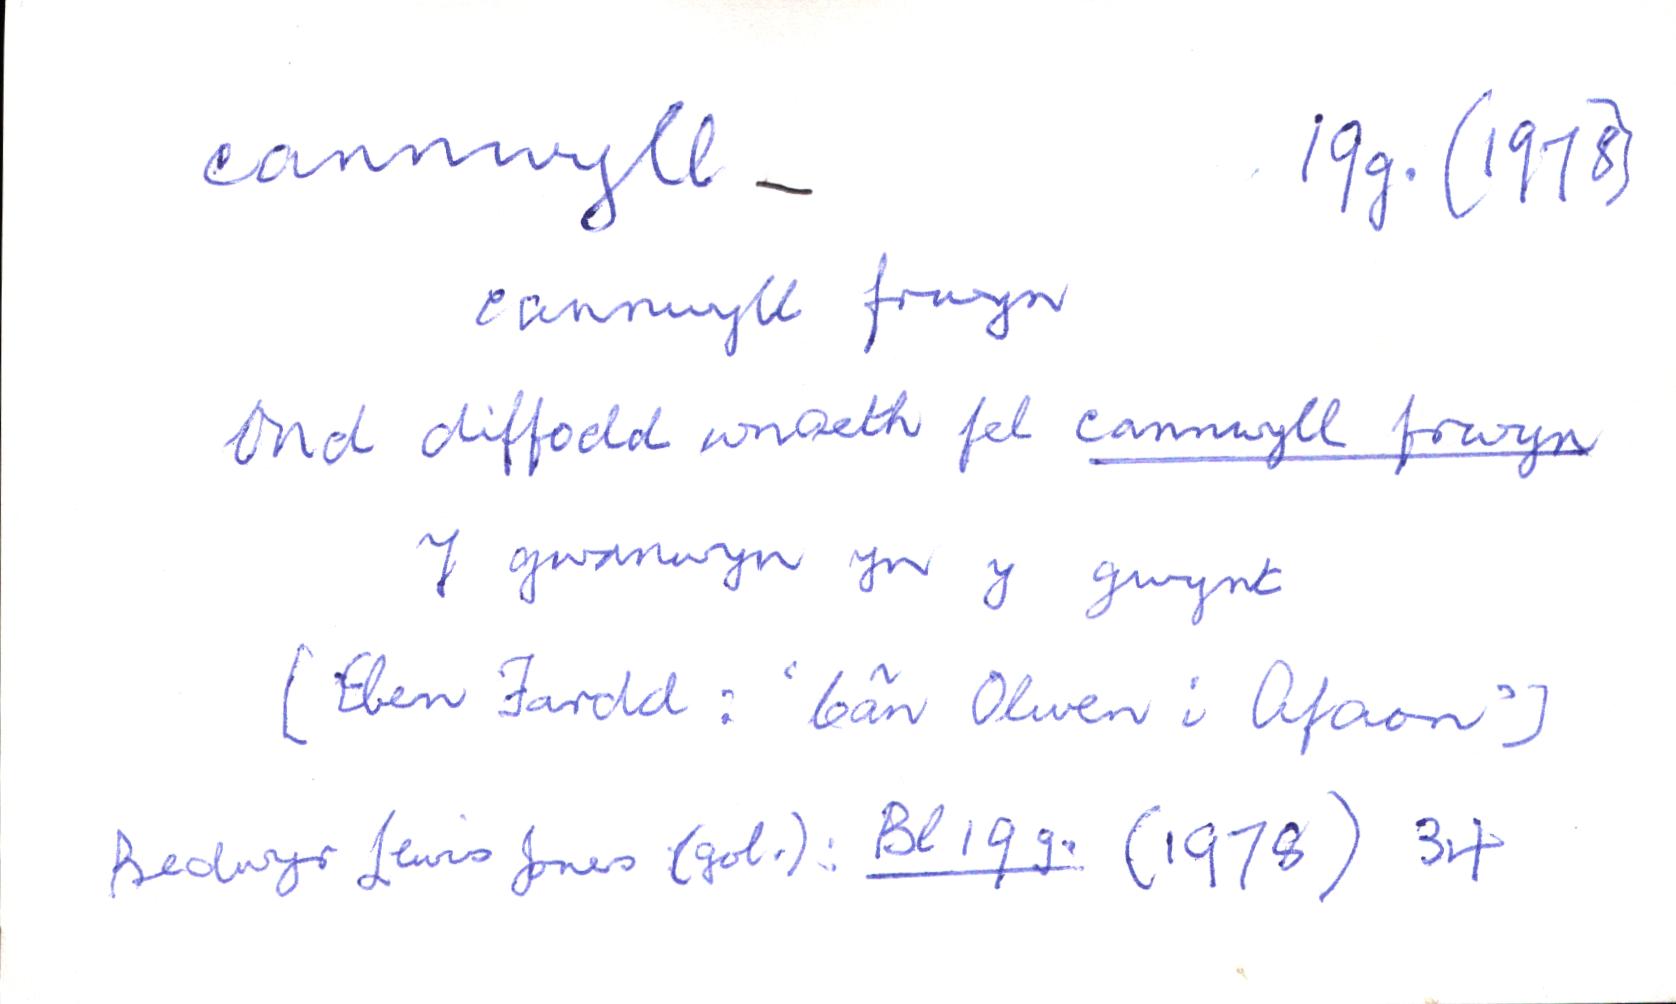 cannwyll – 19g. (1978)
cannwyll frwyn
Ond diffodd wnaeth fel cannwyll frwyn
Y gwanwyn yn y gwynt
[Eben Fardd : 'Cân Olwen i Afaon']
Bedwyr Lewis Jones (gol.): Bl 19g. (1978) 34